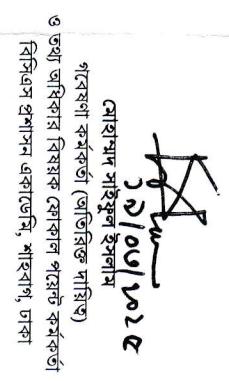 ১৯/০৩/২০২৫
মোহাম্মদ সাইফুল ইসলাম
গবেষণা কর্মকর্তা (অতিরিক্ত দায়িত্ব)
ও তথ্য অধিকার বিষয়ক ফোকাল পয়েন্ট কর্মকর্তা
বিসিএস প্রশাসন একাডেমি, শাহবাগ, ঢাকা